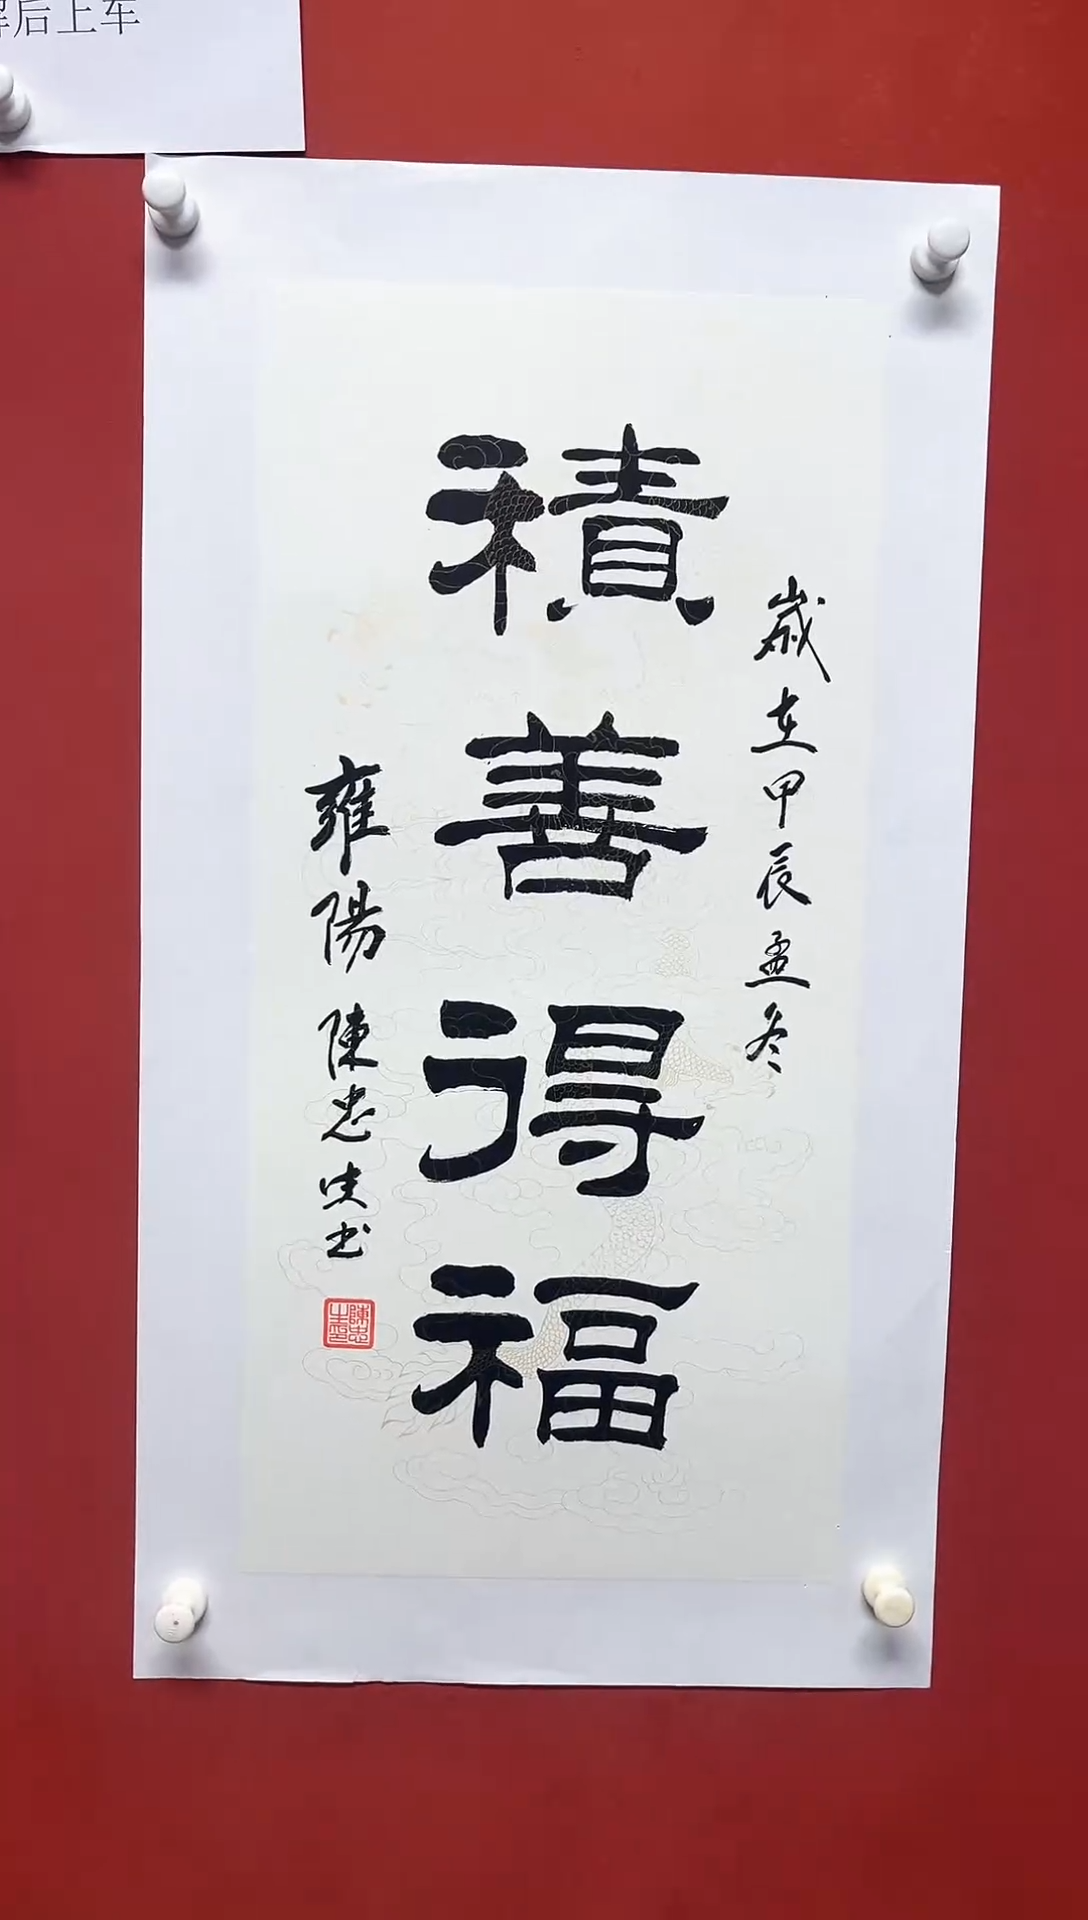 后上车
歲在甲辰孟冬
積善得福
雍陽陳忠书
陳忠